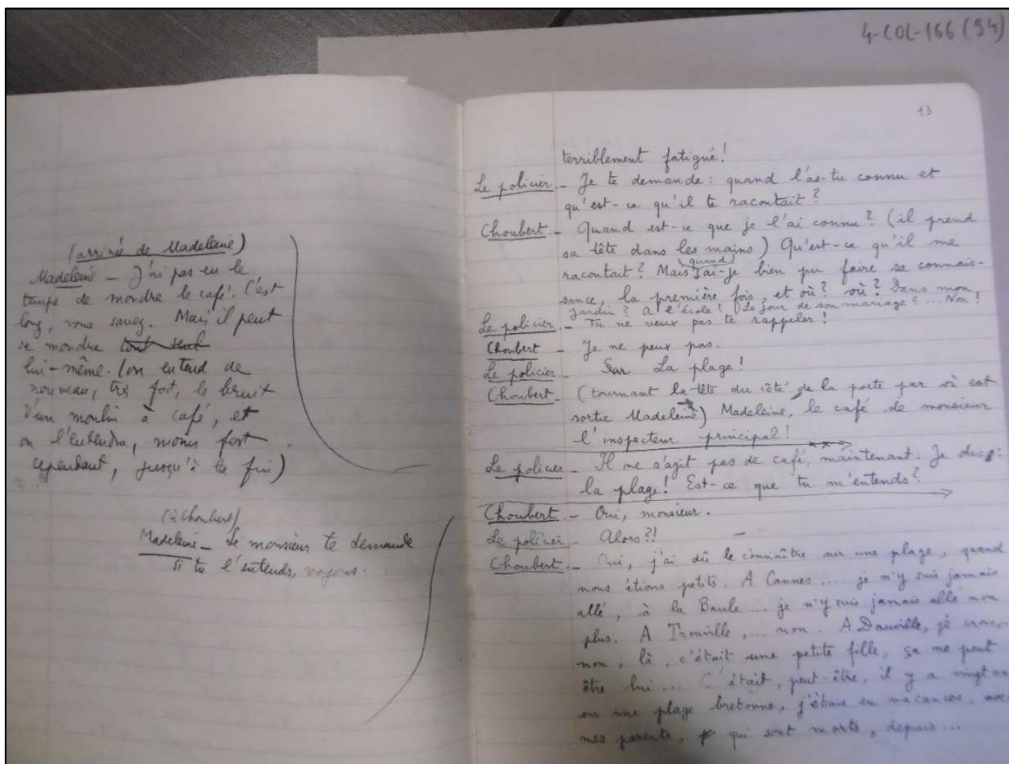 4-COL-166 (94)
(arrivée de Madeleine)
Madeleine - J'ai pas eu le
temps de moudre le café. C'est
long, vous savez. Mais il peut
se moudre tout seul
lui-même. (on entend de
nouveau, très fort, le bruit
d'un moulin à café, et
on l'entendra, moins fort
cependant, jusqu'à la fin)
(à Choubert)
Madeleine - Le monsieur te demande
si tu l'entends, voyons.
13
terriblement fatigué!
Le policier - Je te demande : quand l'as-tu connu et
qu'est-ce qu'il te racontait?
Choubert - Quand est-ce que je l'ai connu? (il prend
sa tête dans les mains) Qu'est-ce qu'il me
racontait? Mais quand ai-je bien pu faire sa connais-
sance, la première fois, et où? où? Dans mon
jardin? A l'école? Le jour de son mariage? ... Non!
Le policier - Tu ne veux pas te rappeler!
Choubert - Je ne peux pas.
Le policier - Sur La plage!
Choubert - (tournant la tête du côté de la porte par où est
sortie Madeleine) Madeleine, le café de monsieur
l'inspecteur principal!
Le policier - Il ne s'agit pas de café, maintenant. Je dis :
la plage! Est-ce que tu m'entends?
Choubert - Oui, monsieur.
Le policier - Alors?!
Choubert - Oui, j'ai dû le connaître sur une plage, quand
nous étions petits. A Cannes .... je n'y suis jamais
allé, à la Baule ... je n'y suis jamais allé non
plus. A Trouville, ... non. A Dauville, je crois,
non, là, c'était une petite fille, ça ne peut
être lui ... C'était, peut-être, il y a vingt ans
sur une plage bretonne, j'étais en vacances, avec
mes parents, qui sont morts, depuis ...